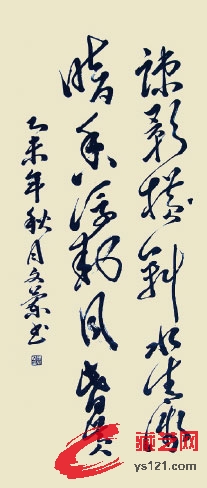 疎影横斜水清浅
暗香浮動月昏黄
乙未年秋月文书
ys121.com